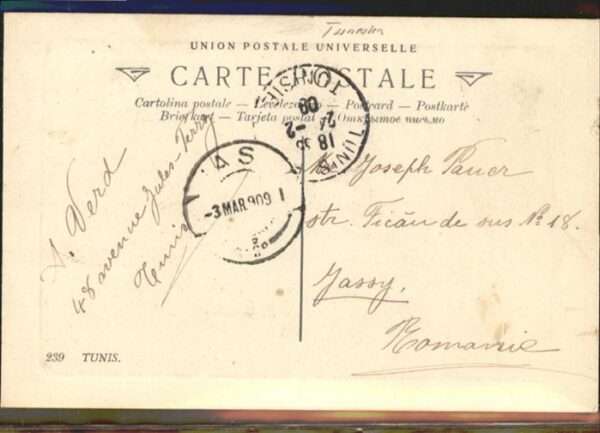 Tunesien
UNION POSTALE UNIVERSELLE
CARTE POSTALE
Cartolina postale — Levelezo — Postcard — Postkarte
Briefkart — Tarjeta postal — Открытое письмо
TUNIS
18
24 - 2
09
AS
-3 MAR 909 1
J. Verd
48 avenue Jules-Ferry
Tunis
Mr Joseph Pauer
str. Ticău de sus No 18.
Jassy,
Romanie
239 TUNIS.